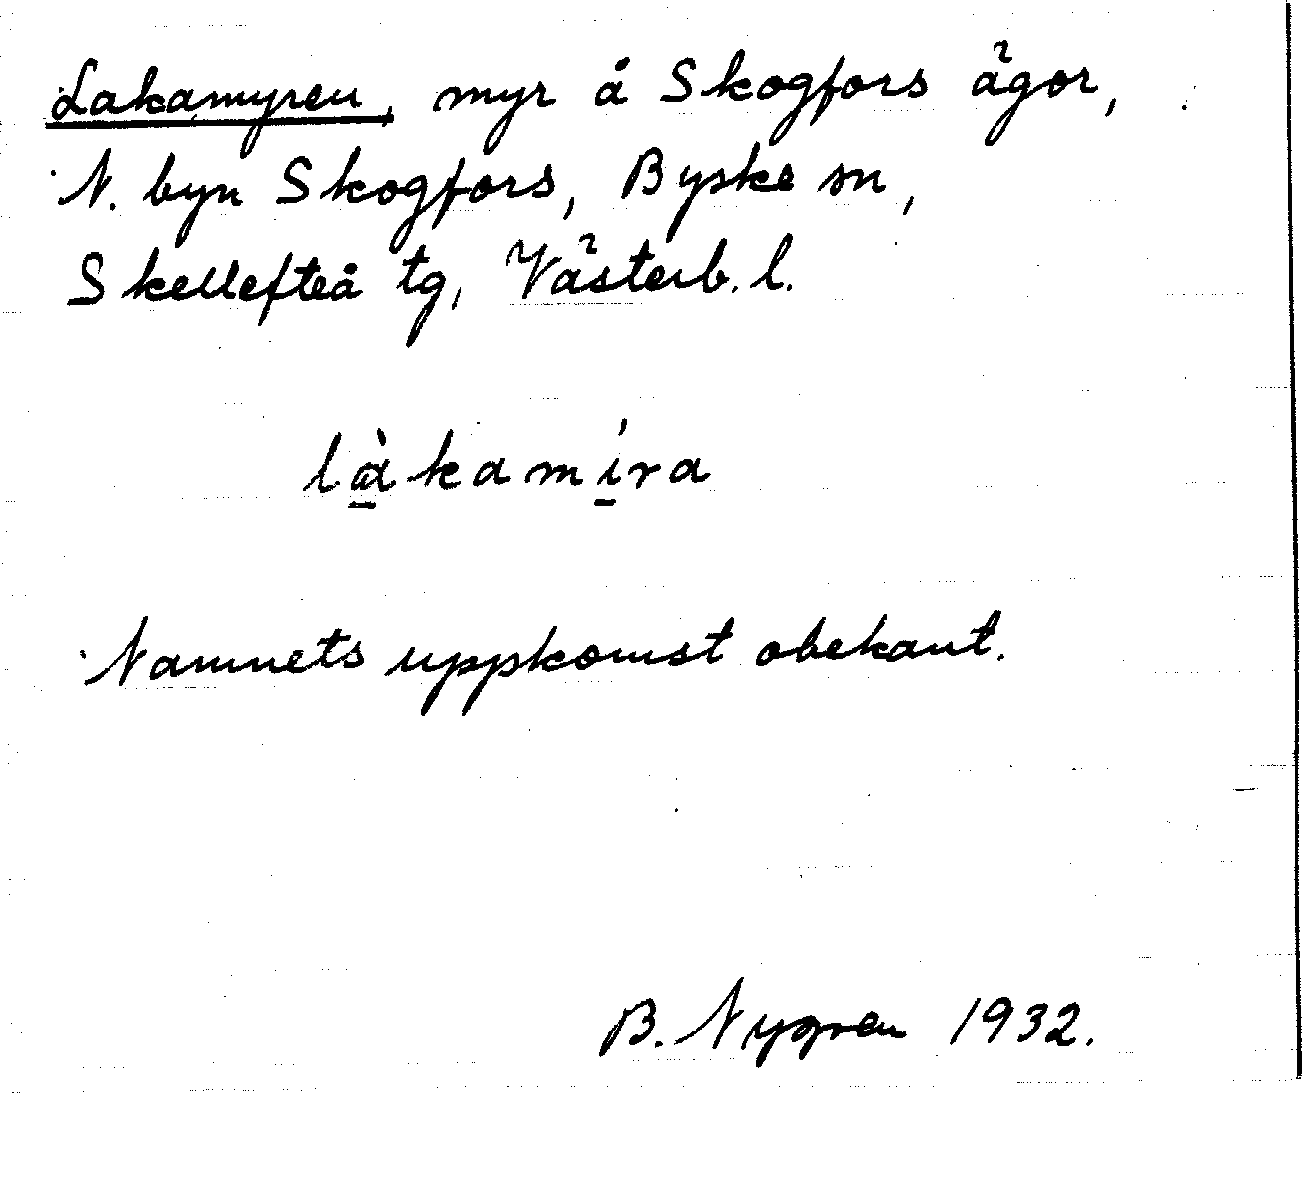 Lakamyren, myr å Skogfors ägor,
N. byn Skogfors, Byske sn,
Skellefteå tg, Västerb. l.
là̱kamí̱ra
Namnets uppkomst obekant.
B. Nygren 1932.